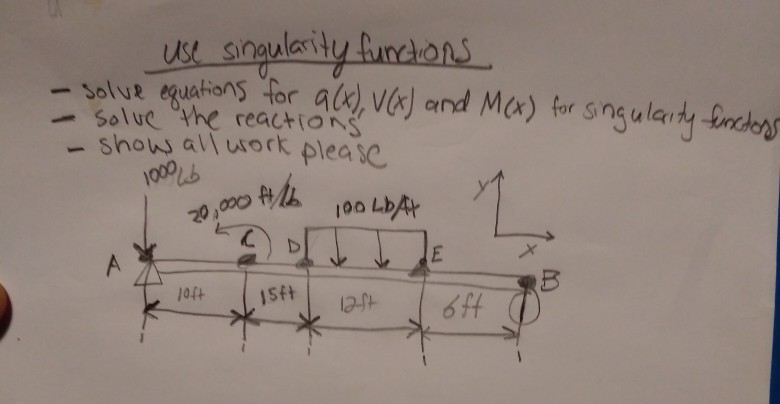 use singularity functions
- solve equations for q(x), V(x) and M(x) for singularity functions
- solve the reactions
- show all work please
1000 Lb
20,000 ft/lb
100 Lb/ft
y
x
A
C
D
E
B
10ft
15ft
12ft
6ft